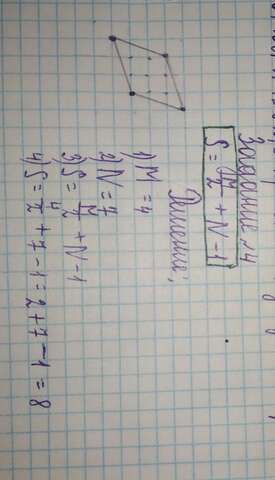 Задание №4
S = M/2 + N - 1
Решение:
1) M = 4
2) N = 7
3) S = M/2 + N - 1
4) S = 4/2 + 7 - 1 = 2 + 7 - 1 = 8